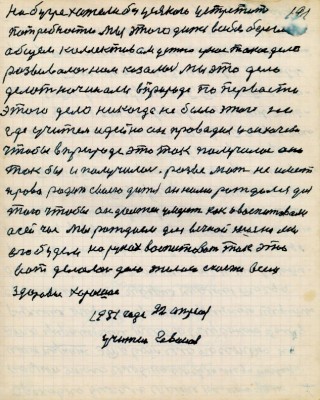 на бугре хотели бу целково цетретого 191
потребности мы этого дитя себе береги
общем коллективом дитя у нас такое дело
развивалось нам казалось мы это дело
делат начинали в природе по первости
этого дело никогда не было этого на
где учител идейно он проводил и он хочет
чтобы в природе это так получилос оно
так бы и получилос. разве мат не имеет
права родит своего дитя он нами рождался для
того чтобы он должен умирит как и воспитовали
а сейчас мы рождаем для вечной жизни мы
его будем на руках воспитоват так это
вот делалос дело желаю счастя всем
здоровя хорошое
1981 года 22 апреля
учител Иванов